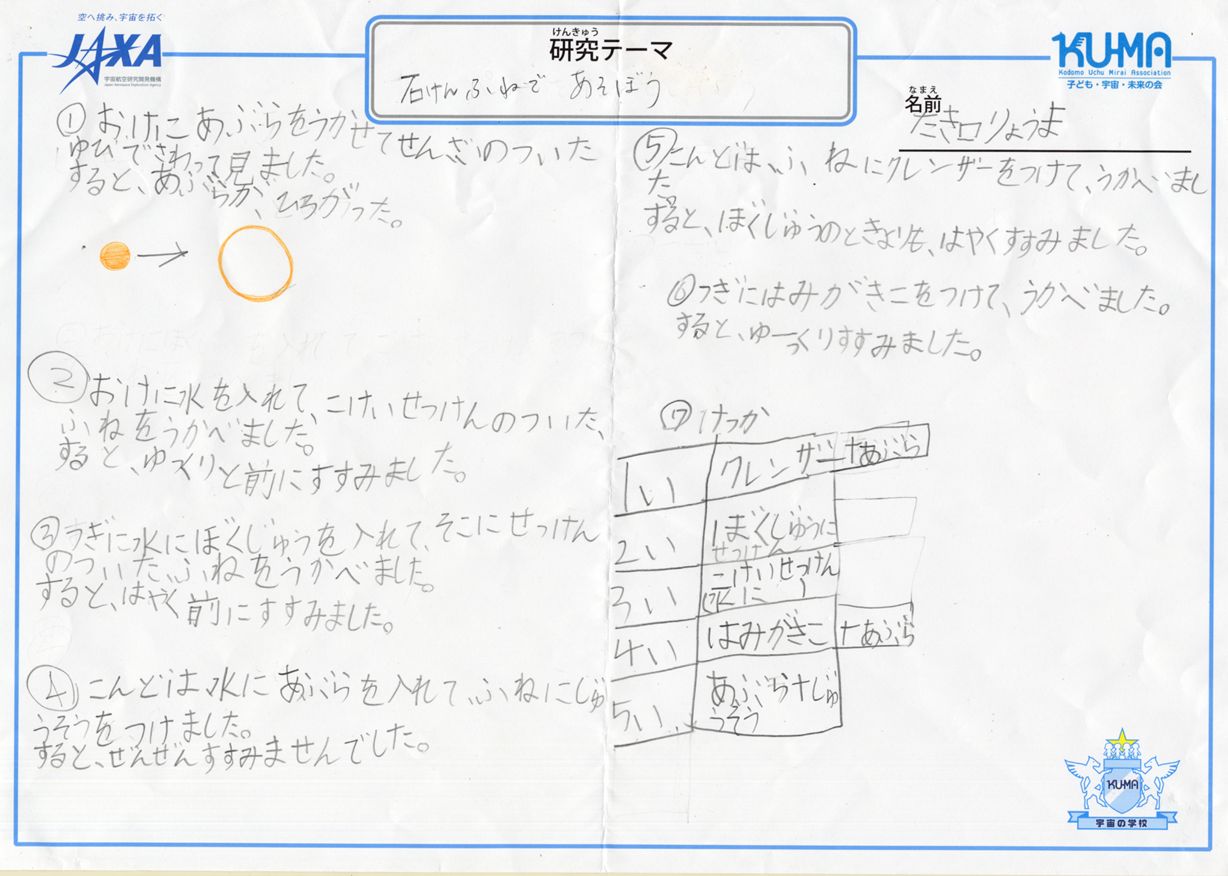 空へ挑み、宇宙を拓く
JAXA
宇宙航空研究開発機構
Japan Aerospace Exploration Agency
けんきゅう
研究テーマ
石けんふねで あそぼう
KU-MA
Kodomo Uchu Mirai Association
子ども・宇宙・未来の会
なまえ
名前
たき口りょうま
① おけにあぶらをうかせてせんざいのついた
ゆびでさわって見ました。
すると、あぶらが、ひろがった。
② おけに水を入れて、こけいせっけんのついた、
ふねをうかべました。
すると、ゆっくりと前にすすみました。
③ つぎに水にぼくじゅうを入れて、そこにせっけん
のついた、ふねをうかべました。
すると、はやく前にすすみました。
④ こんどは、水にあぶらを入れて、ふねにじゅ
うそうをつけました。
すると、ぜんぜんすすみませんでした。
⑤ こんどは、ふねにクレンザーをつけて、うかべまし
た。
すると、ぼくじゅうのときよりも、はやくすすみました。
⑥ つぎにはみがきこをつけて、うかべました。
すると、ゆーっくりすすみました。
⑦ けっか
1い クレンザー +あぶら
2い ぼくじゅうに
せっけん
3い こけいせっけん
水に
4い はみがきこ +あぶら
5い あぶら+じゅ
うそう
KU-MA
宇宙の学校